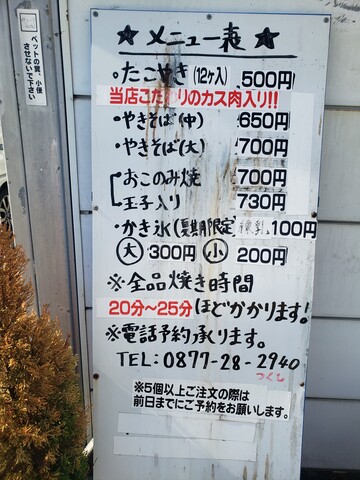 ペットの糞、小便
させないで下さい
★メニュー表★
・たこやき(12ヶ入) 500円
当店こだわりのカス肉入り!!
・やきそば(中) 650円
・やきそば(大) 700円
・おこのみ焼 700円
玉子入り 730円
・かき氷(夏期限定) 練乳 100円
大 300円 小 200円
※全品焼き時間
20分〜25分ほどかかります!
※電話予約承ります。
TEL:0877-28-2940
つくし
※5個以上ご注文の際は
前日までにご予約をお願いします。